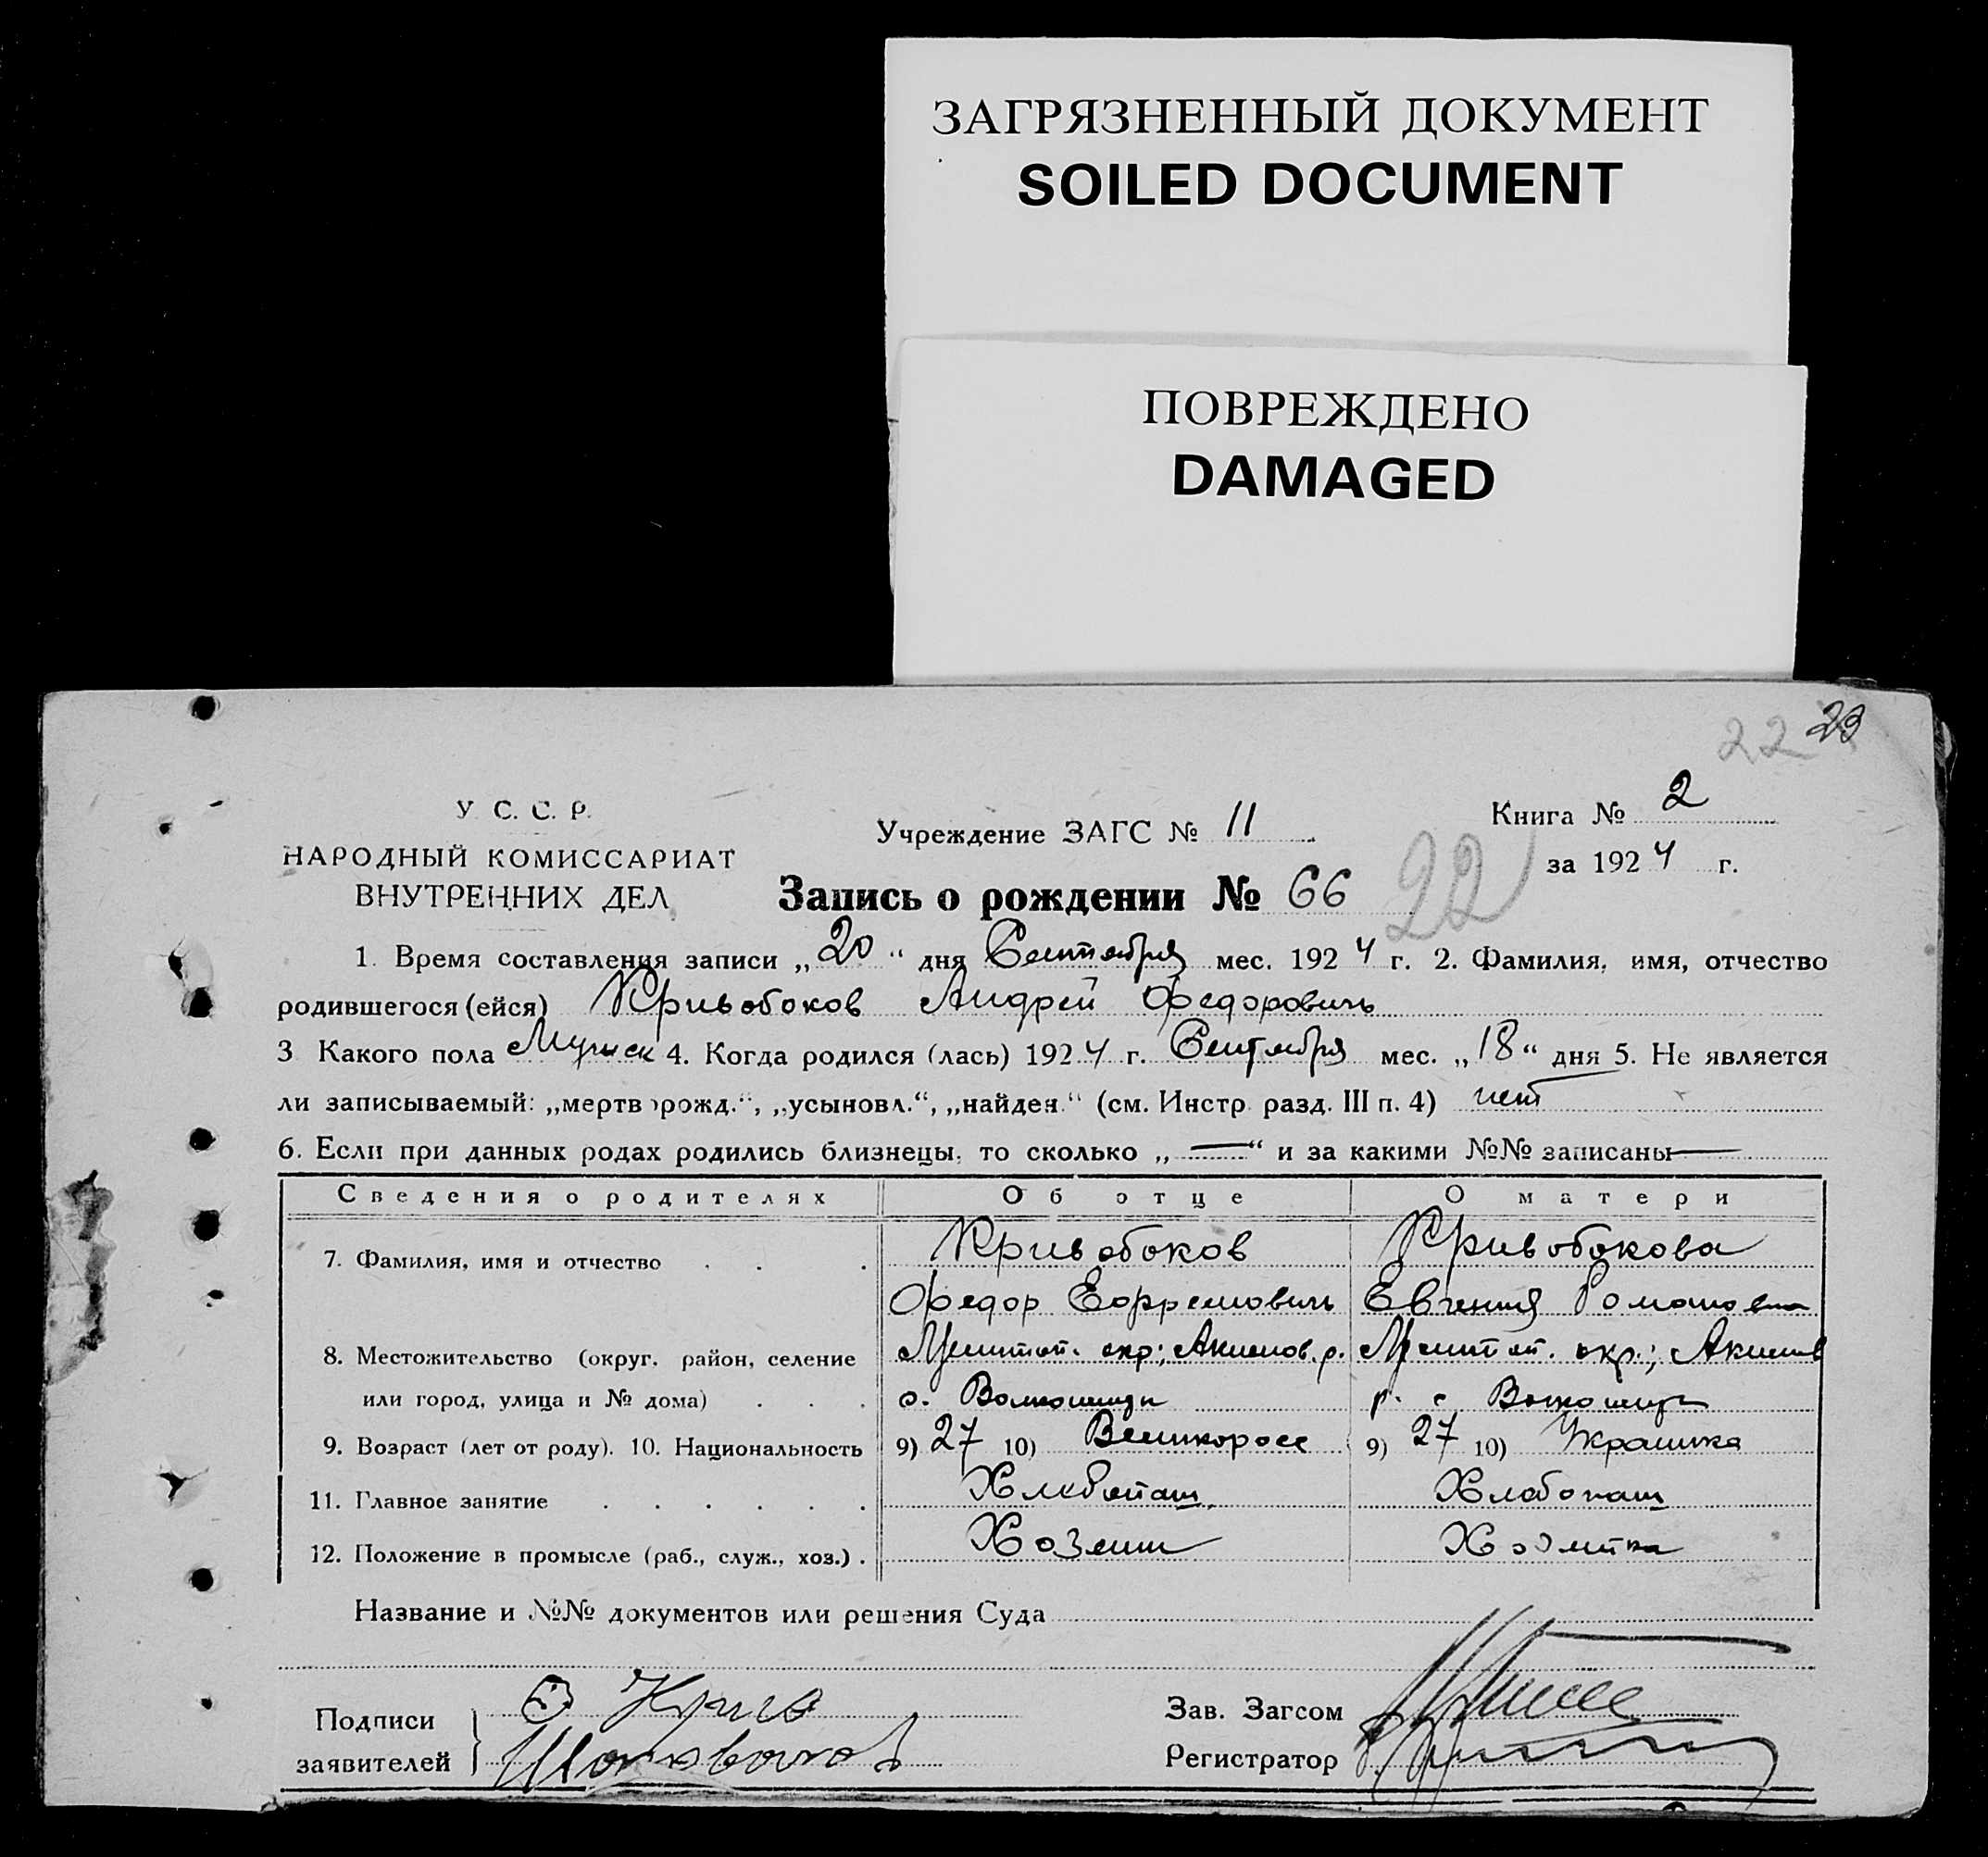 ЗАГРЯЗНЕННЫЙ ДОКУМЕНТ
SOILED DOCUMENT
ПОВРЕЖДЕНО
DAMAGED
22 23
У. С. С. Р.
НАРОДНЫЙ КОМИССАРИАТ
ВНУТРЕННИХ ДЕЛ
Учреждение ЗАГС № 11
Книга № 2
за 1924 г.
Запись о рождении № 66 22
1. Время составления записи „20“ дня Сентября мес. 1924 г. 2. Фамилия, имя, отчество
родившегося (ейся) Кривобоков Андрей Федорович
3 Какого пола Мужск 4. Когда родился (лась) 1924 г. Сентября мес. „18“ дня 5. Не является
ли записываемый: „мертворожд.“, „усыновл.“, „найден.“ (см. Инстр. разд. III п. 4) нет
6. Если при данных родах родились близнецы, то сколько „—“ и за какими №№ записаны —
Сведения о родителях Об отце О матери
7. Фамилия, имя и отчество Кривобоков Кривобокова
Федор Ефремович Евгения Романовна
8. Местожительство (округ, район, селение Мелитоп. окр.; Акимов. р. Мелитоп. окр.; Акимов
или город, улица и № дома) с. Волкошицы р. с
9. Возраст (лет от роду). 10. Национальность 9) 27 10) Великоросс 9) 27 10) Украинка
11. Главное занятие Хлебопаш Хлебопаш
12. Положение в промысле (раб., служ., хоз.) Хозяин Хозяйка
Название и №№ документов или решения Суда
Подписи
заявителей
Зав. Загсом
Регистратор